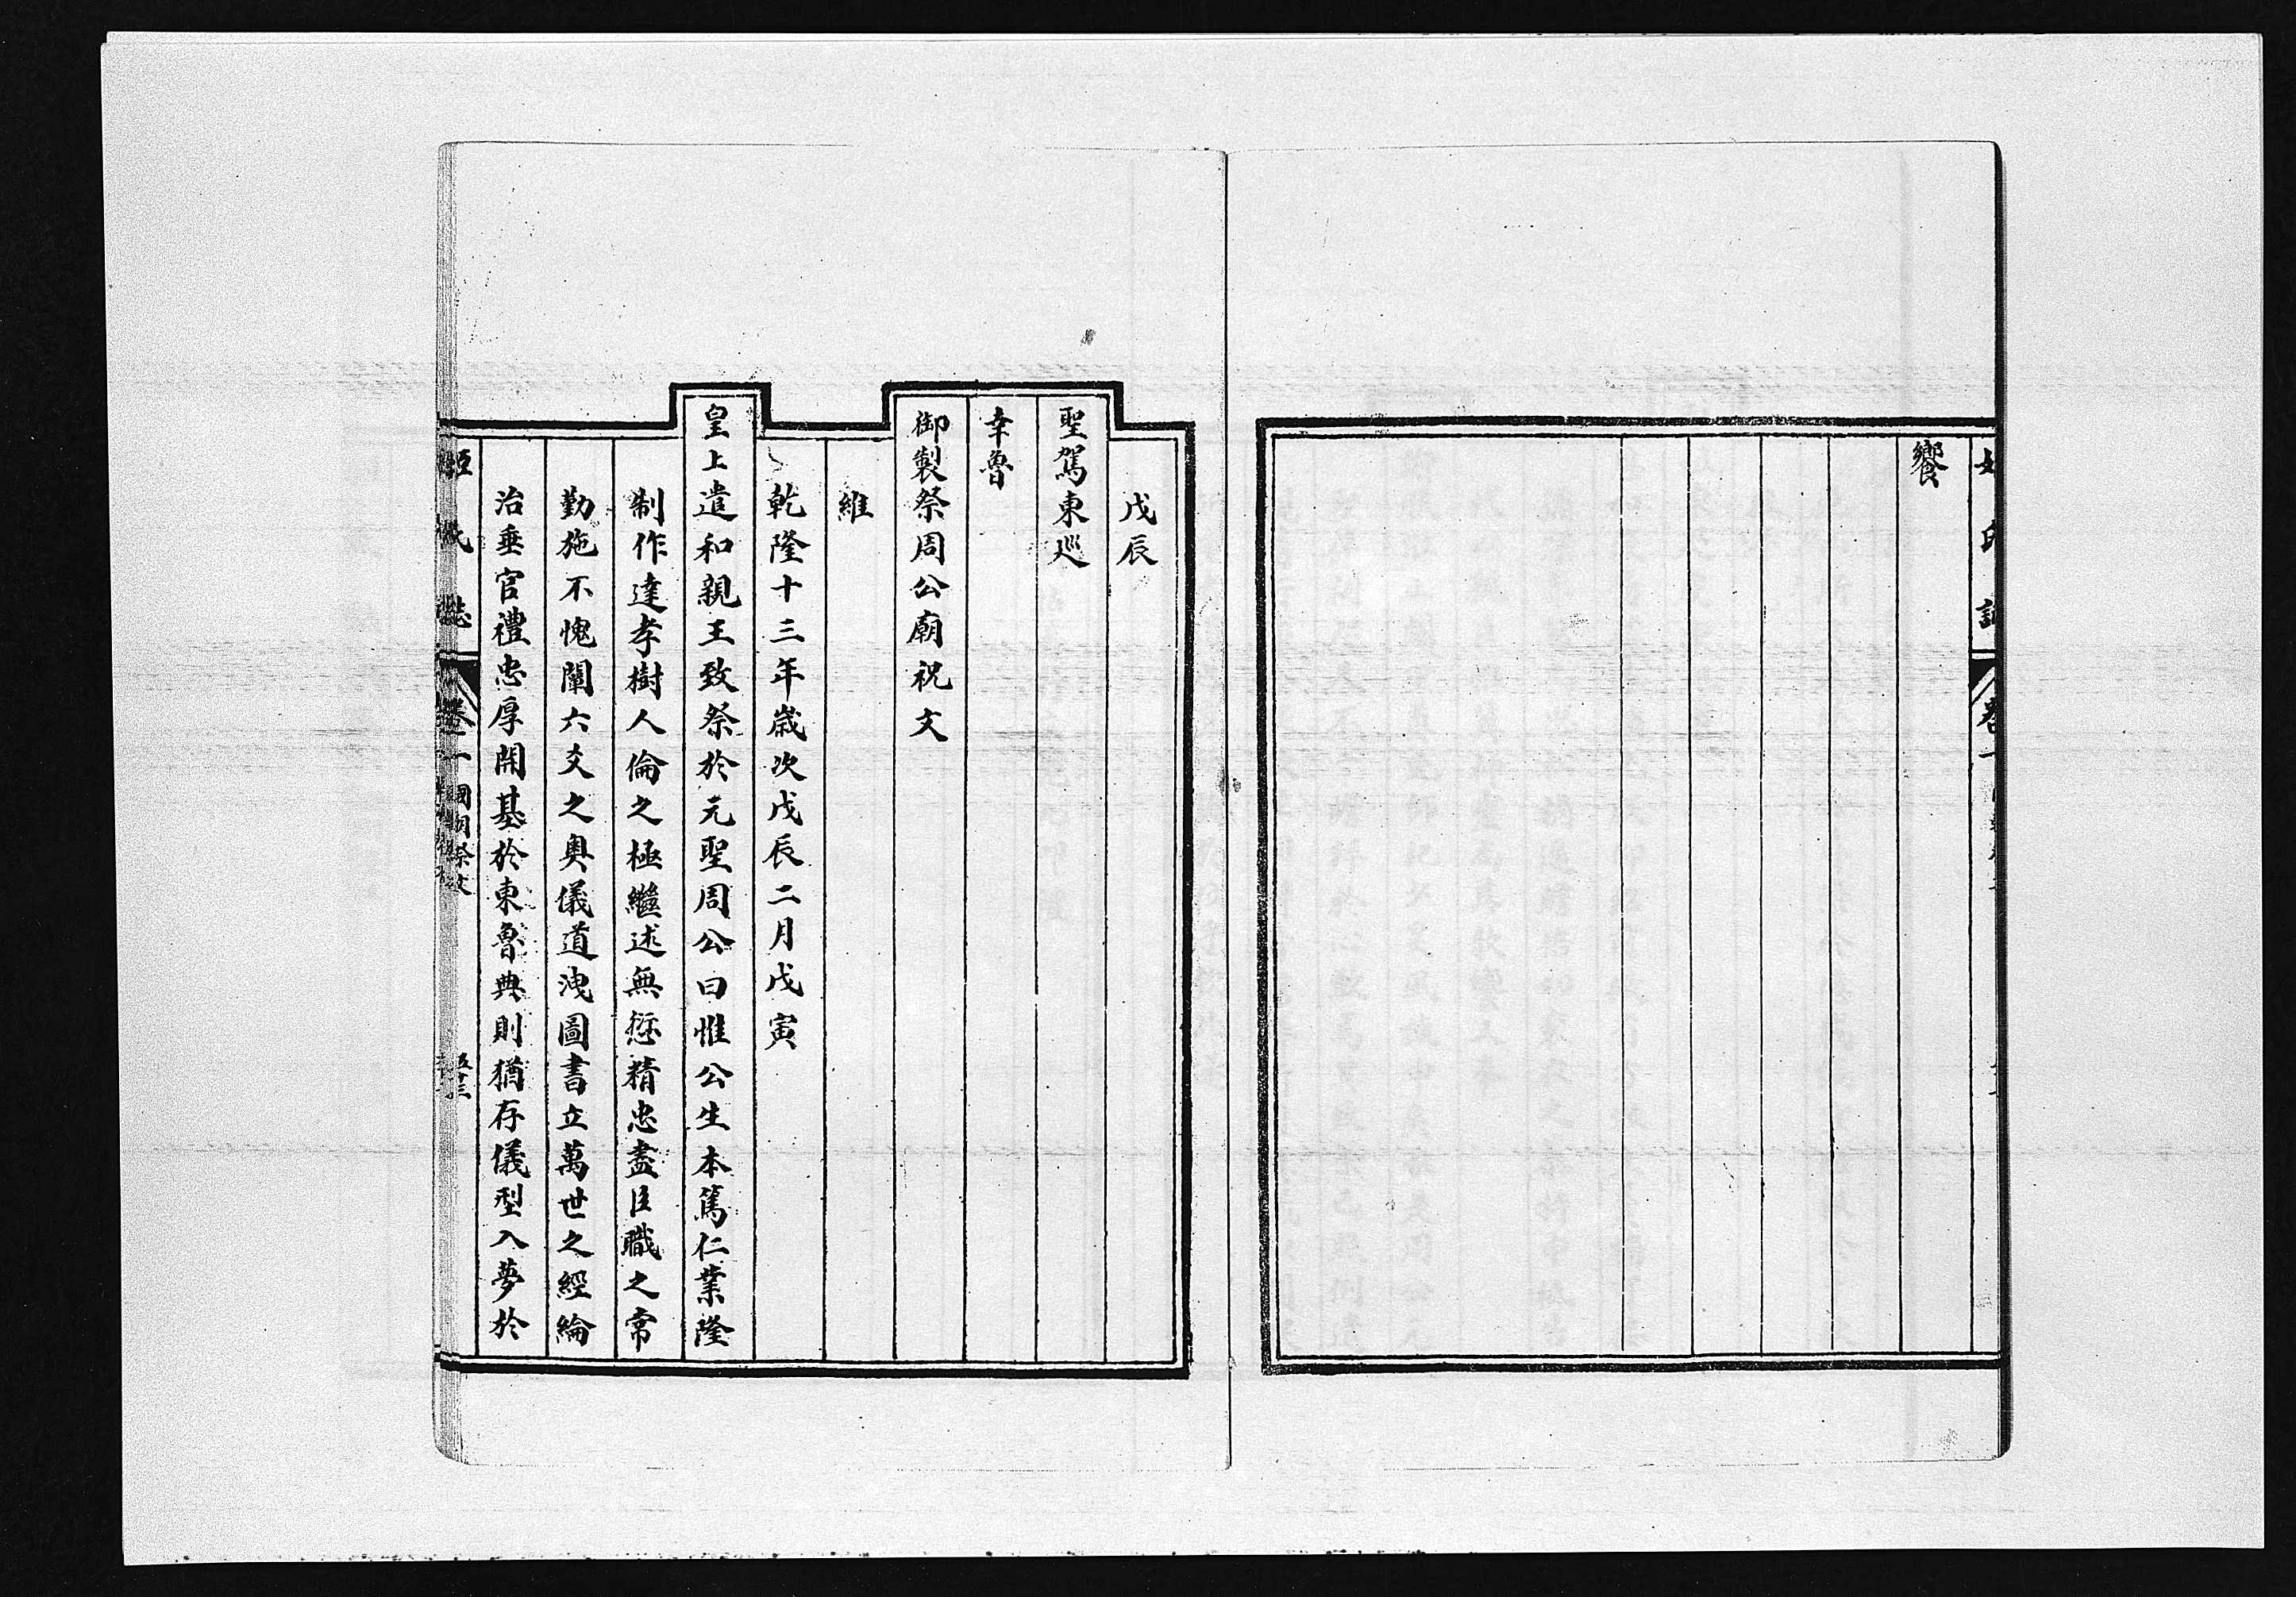 饗
戊辰
聖駕東巡
幸魯
御製祭周公廟祝文
維
乾隆十三年歲次戊辰二月戊寅
皇上遣和親王致祭於元聖周公曰惟公生本篤仁業隆
制作達孝樹人倫之極繼述無愆精忠盡臣職之常
勤施不愧闡六爻之奧儀道洩圖書立萬世之經綸
治垂官禮忠厚開基於東魯典則猶存儀型入夢於
姬氏誌 卷一 國朝祭文 五十三